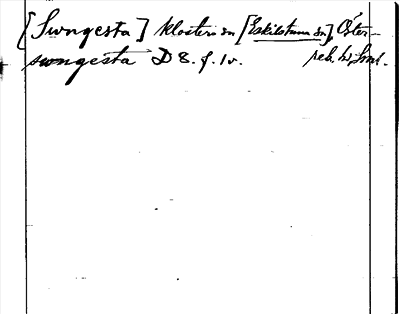 [Swngesta] Klosters sn [Eskilstuna sn], Öster-
swngesta D 8. f. 1v. reb. W. Smt.